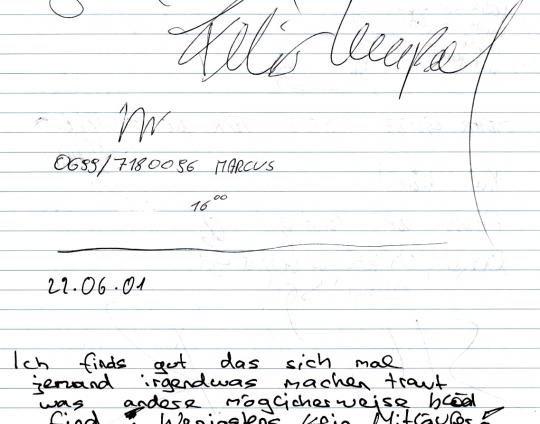 0699/7180096 MARCUS
16⁰⁰
22.06.01
Ich finds gut das sich mal
jemand irgendwas machen traut
was andere möglicherweise blöd
find Wenigstens kein Mitläufer